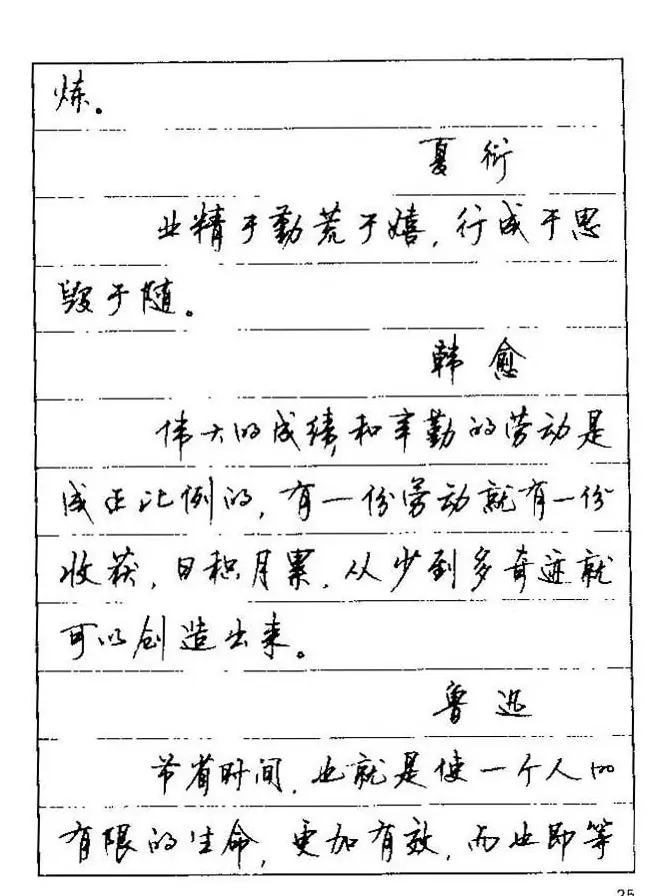 炼。
夏衍
业精于勤荒于嬉，行成于思
毁于随。
韩愈
伟大的成绩和辛勤的劳动是
成正比例的，有一份劳动就有一份
收获，日积月累，从少到多奇迹就
可以创造出来。
鲁迅
节省时间，也就是使一个人的
有限的生命，更加有效，而也即等
25